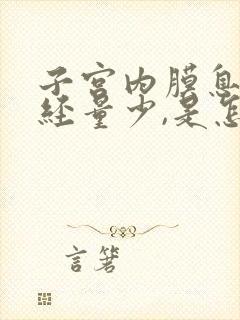 子宫内膜息
经量少,是怎
言箸